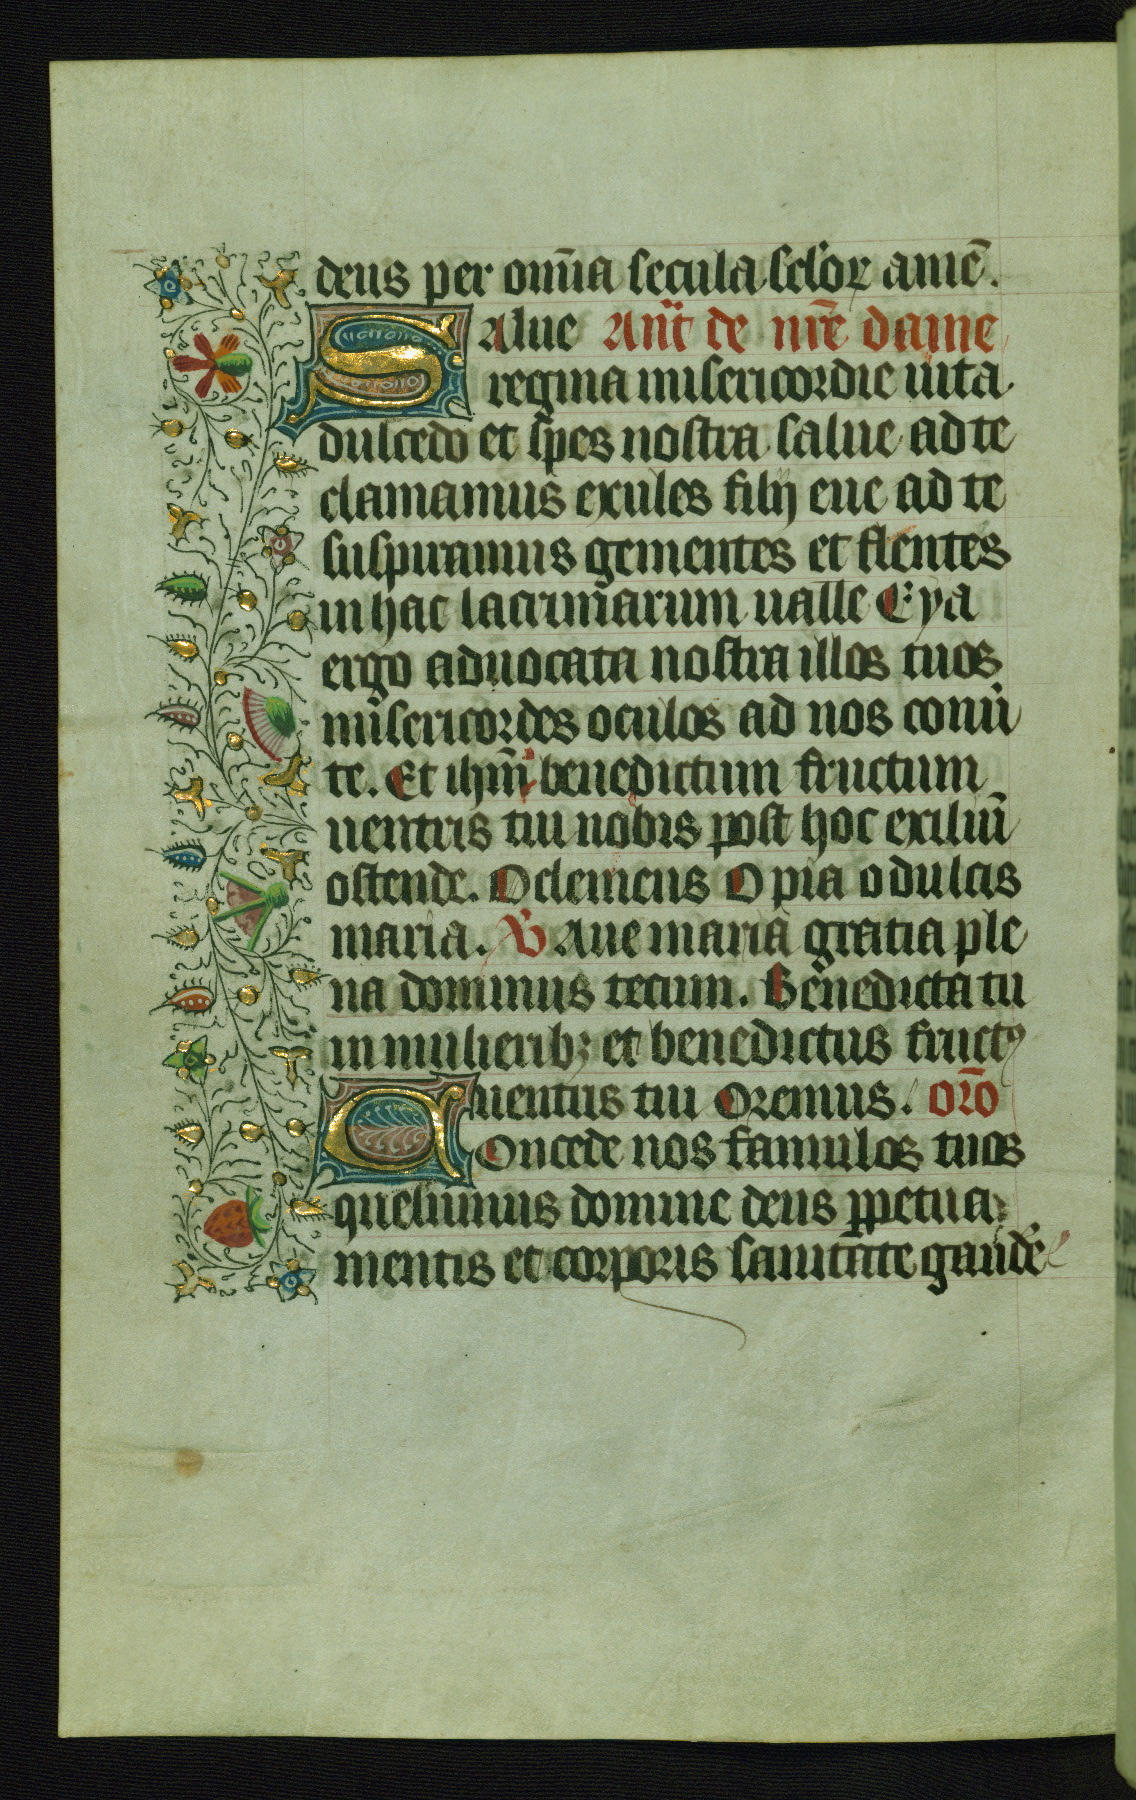 deus per om̄ia secula sc̄lor amē.
Salue Ant̄ de nr̄e dame
regina misericordie uita
dulcedo et spes nostra salue ad te
clamamus exules filij eue ad te
suspiramus gementes et flentes
in hac lacrimarum ualle Eya
ergo aduocata nostra illos tuos
misericordes oculos ad nos conu̾
te. Et ihm̄ benedictum fructum
uentris tui nobis post hoc exiliū
ostende. O clemens O pia o dulcis
maria. V Aue maria gratia ple
na dominus tecum. Benedicta tu
in mulieribꝫ et benedictus fructꝰ
uentris tui Oremus. oro̅
Concede nos famulos tuos
quesumus domine deus ꝑpetua
mentis et corporis sanitate gaudē